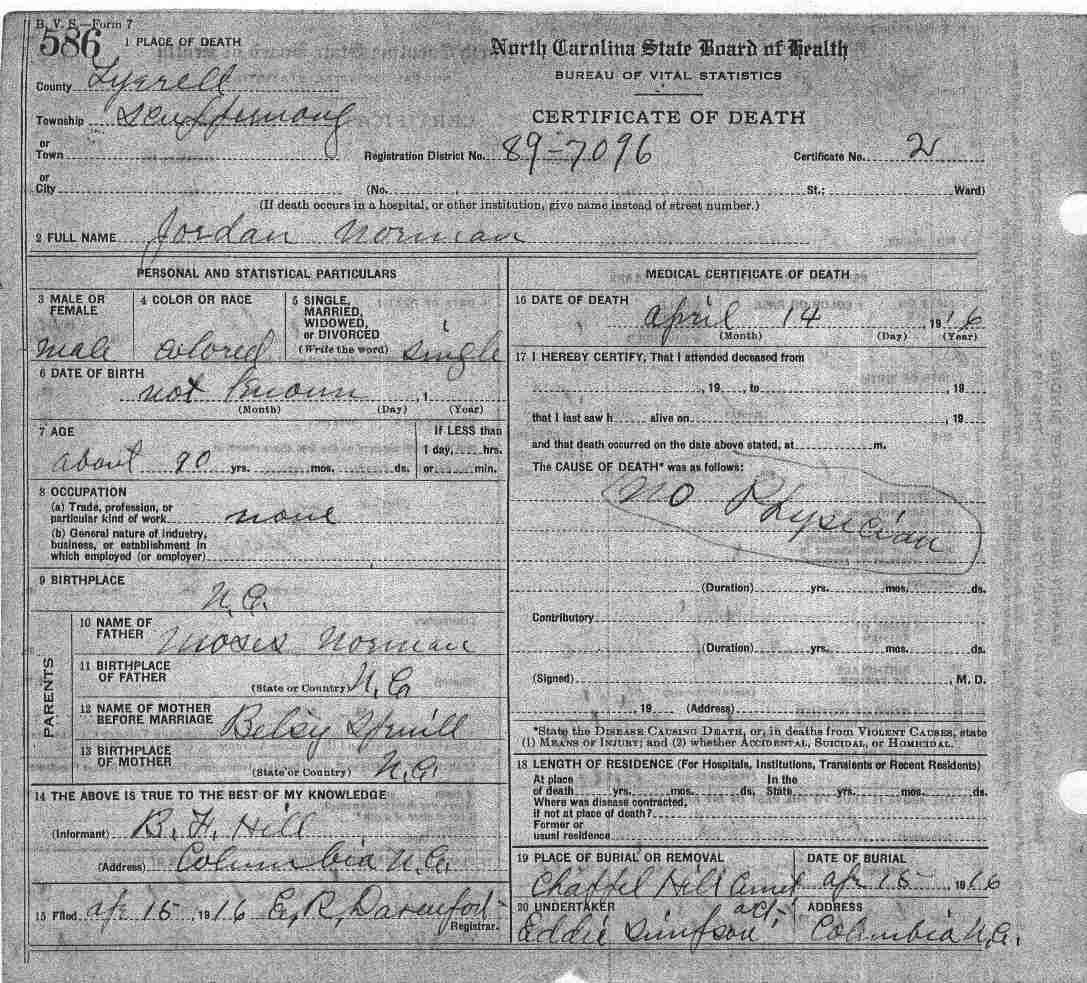 B. V. S.—Form 7
586
1 PLACE OF DEATH
North Carolina State Board of Health
BUREAU OF VITAL STATISTICS
CERTIFICATE OF DEATH
County Tyrrell
Township Scuppernong
or
Town
Registration District No. 89-7096
Certificate No. 2
or
City (No. St.; Ward)
(If death occurs in a hospital, or other institution, give name instead of street number.)
2 FULL NAME Jordan Norman
PERSONAL AND STATISTICAL PARTICULARS
3 MALE OR FEMALE
male
4 COLOR OR RACE
colored
5 SINGLE, MARRIED, WIDOWED, or DIVORCED
(Write the word) single
6 DATE OF BIRTH
not known , 1
(Month) (Day) (Year)
7 AGE
about 90 yrs. mos. ds.
If LESS than
1 day, hrs.
or min.
8 OCCUPATION
(a) Trade, profession, or
particular kind of work none
(b) General nature of industry,
business, or establishment in
which employed (or employer)
9 BIRTHPLACE
N.C.
PARENTS
10 NAME OF FATHER
Moses Norman
11 BIRTHPLACE OF FATHER
(State or Country) N.C.
12 NAME OF MOTHER BEFORE MARRIAGE
Betsy Spruill
13 BIRTHPLACE OF MOTHER
(State or Country) N.C.
14 THE ABOVE IS TRUE TO THE BEST OF MY KNOWLEDGE
(Informant) B. H. Hill
(Address) Columbia N.C.
15 Filed Apr 15 1916 E. R. Davenport
Registrar.
MEDICAL CERTIFICATE OF DEATH
16 DATE OF DEATH
April 14 , 1916
(Month) (Day) (Year)
17 I HEREBY CERTIFY, That I attended deceased from
, 19 , to , 19
that I last saw h alive on , 19
and that death occurred on the date above stated, at m.
The CAUSE OF DEATH* was as follows:
No Physician
(Duration) yrs. mos. ds.
Contributory
(Duration) yrs. mos. ds.
(Signed) , M. D.
, 19 (Address)
*State the DISEASE CAUSING DEATH, or, in deaths from VIOLENT CAUSES, state
(1) MEANS OF INJURY; and (2) whether ACCIDENTAL, SUICIDAL, or HOMICIDAL.
18 LENGTH OF RESIDENCE (For Hospitals, Institutions, Transients or Recent Residents)
At place In the
of death yrs. mos. ds. State yrs. mos. ds.
Where was disease contracted,
if not at place of death?
Former or
usual residence
19 PLACE OF BURIAL OR REMOVAL
Chappel Hill
DATE OF BURIAL
Apr 15 1916
20 UNDERTAKER
act.
Eddie Simpson
ADDRESS
Columbia N.C.